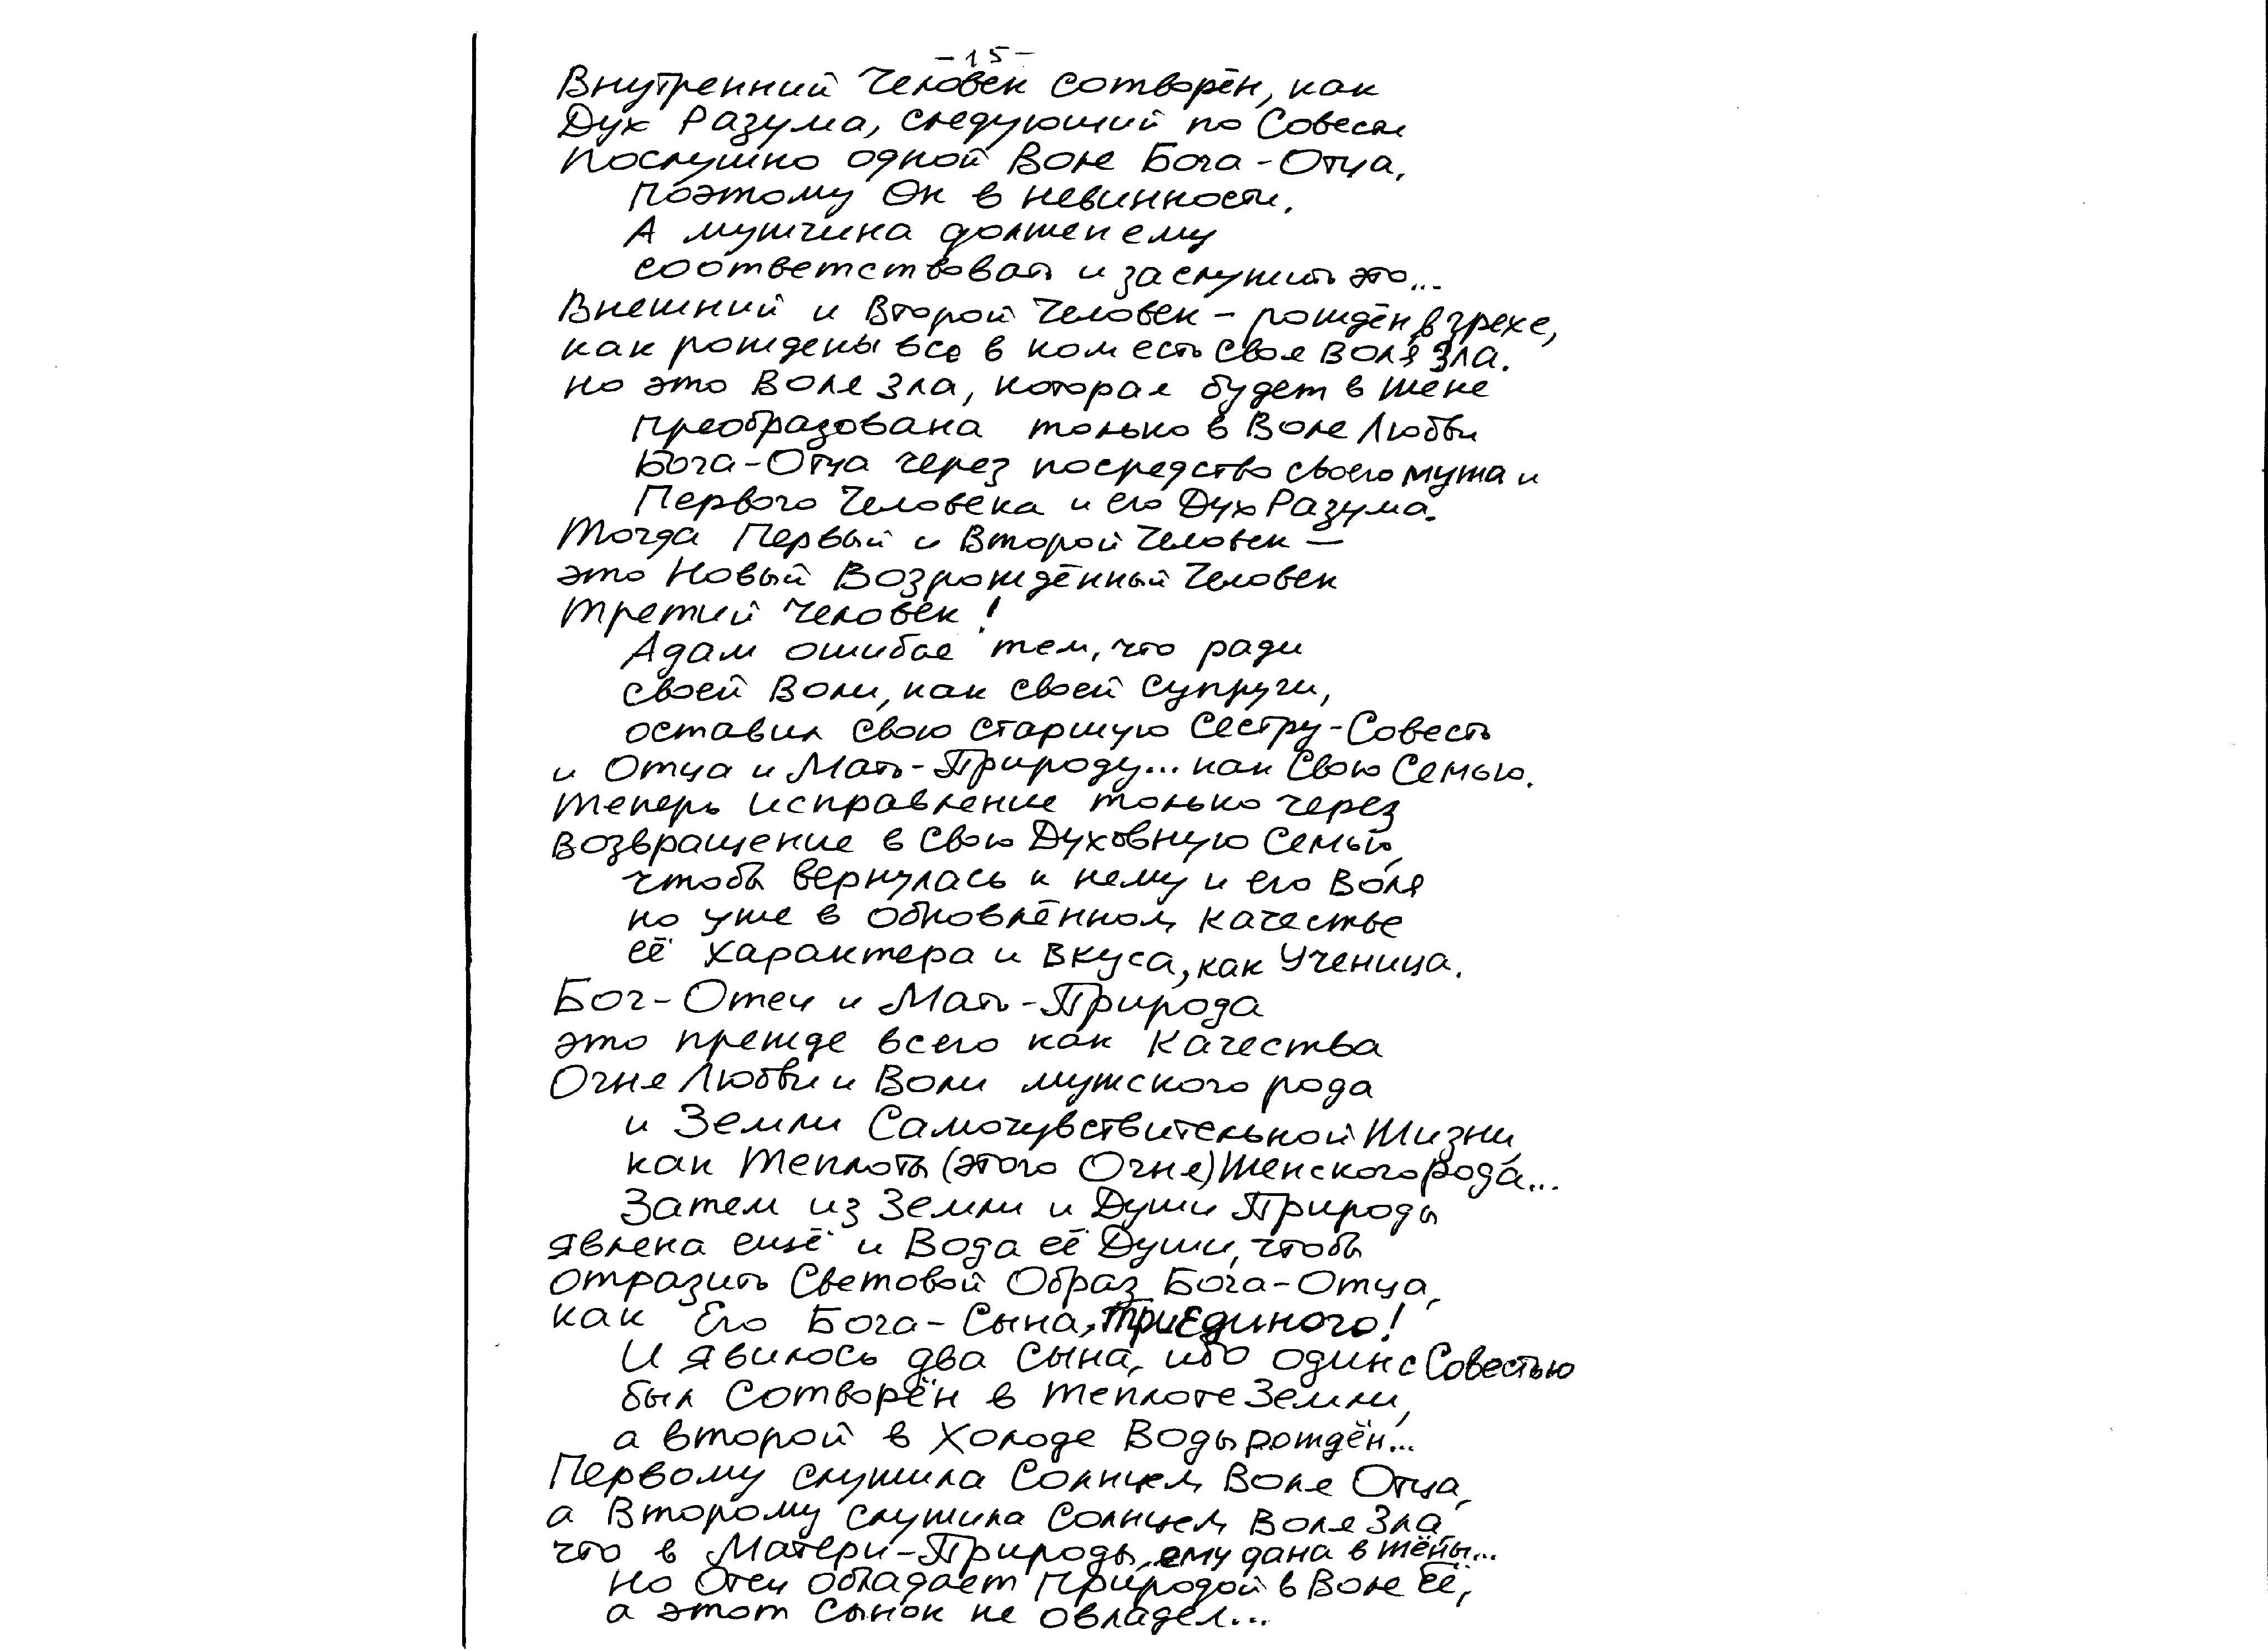 -15-
Внутренний Человек сотворён, как
Дух Разума, следующий по Совести
послушно одной Воле Бога-Отца,
поэтому Он в невинности.
А мужчина должен ему
соответствовать и заслужить это...
Внешний и Второй Человек - рождён в грехе,
как рождены все в ком есть своя Воля Зла.
но это Воля Зла, которая будет в жене
преобразована только в Воле Любви
Бога-Отца через посредство своего мужа и
Первого Человека и его Дух Разума.
Тогда Первый и Второй Человек —
это Новый Возрождённый Человек
Третий Человек!
Адам ошибся тем, что ради
своей Воли, как своей Супруги,
оставил свою старшую Сестру-Совесть
и Отца и Мать-Природу... как Свою Семью.
Теперь исправление только через
возвращение в Свою Духовную Семью,
чтобы вернулась к нему и его Воля
но уже в обновлённом качестве
её характера и вкуса, как Ученица.
Бог-Отец и Мать-Природа
это прежде всего как Качества
Огня Любви и Воли мужского рода
и Земли Самочувствительной Жизни,
как Теплоты (этого Огня) Женского рода...
Затем из Земли и Души Природы
явлена ещё и Вода её Души, чтобы
отразить Световой Образ Бога-Отца,
как Его Бога-Сына, ТриЕдиного!
И явилось два Сына, ибо один с Совестью
был Сотворён в Теплоте Земли,
а второй в Холоде Воды рождён...
Первому служила Солнцем Воля Отца,
а Второму служила Солнцем Воля Зла,
что в Матери-Природы ему дана в жёны...
Но Отец обладает Природой в Воле Её,
а этот Сынок не овладел...